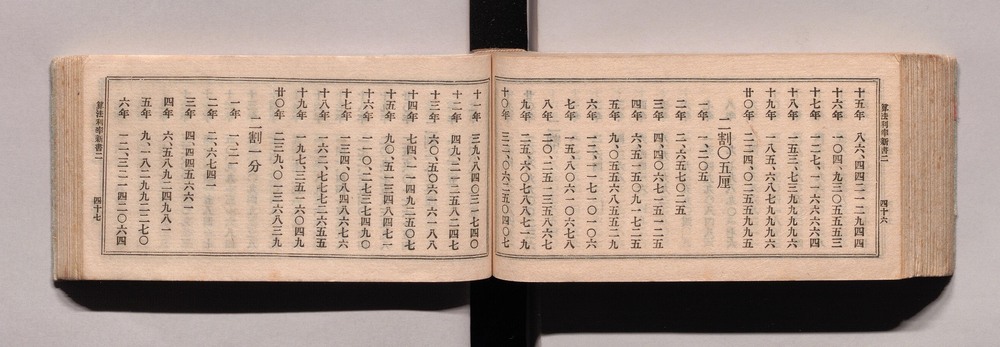 十五年 八六、四四二一二九四四
十六年 一〇四、九三〇五五五三
十七年 一二七、一一六六六六四
十八年 一五三、七三九九九九六
十九年 一八五、六八七九九九六
廿〇年 二二四、〇二五五九九五
二割〇五厘
一年 一、二〇五
二年 二、六五七〇二五
三年 四、四〇六七一五一二五
四年 六、五一五〇九一七二五
五年 九、〇五五六八五五二九
六年 一二、一一七一〇一〇六
七年 一五、八〇六一〇六七八
八年 二〇、二五一三五八六七
九年 二五、六〇七八八七一九
十〇年 三二、〇六二五〇四〇七
算法利率新書二 四十六
十一年 三九、八四〇三一七四〇
十二年 四九、二一二五八二四七
十三年 六〇、五〇六一六一八八
十四年 七四、一一四九二五〇七
十五年 九〇、五一三四八四七一
十六年 一一〇、二七三七四九〇
十七年 一三四、〇八四八六七六
十八年 一六二、七七七二六五五
十九年 一九七、三五一六〇四九
廿〇年 二三九、〇一三六八三九
二割一分
一年 一、二一
二年 二、六七四一
三年 四、四四五六六一
四年 六、五八九二四九八一
五年 九、一八二九九二二七〇
六年 一二、三二一四二〇六四
算法利率新書二 四十七